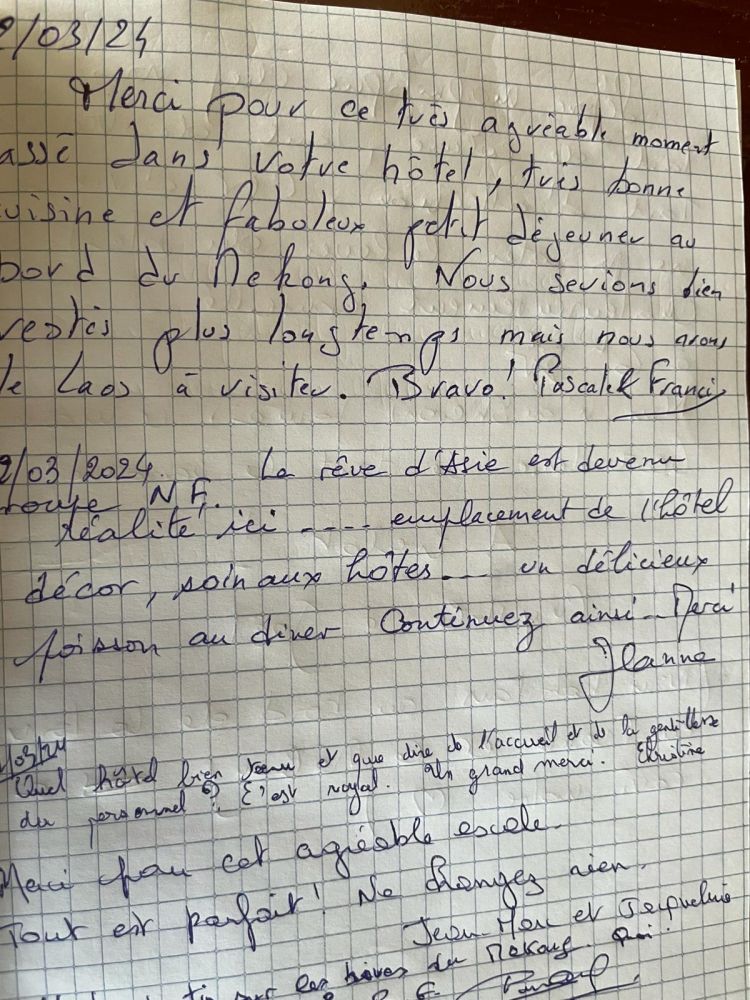 2/03/24
Merci pour ce très agréable moment
assé dans votre hôtel, très bonne
uisine et faboleux petit déjeuner au
bord du Mekong. Nous serions bien
restés plus longtemps mais nous avons
le Laos à visiter. Bravo! Pascale & Francis
2/03/2024. Le rêve d'Asie est devenu
roupe NF.
réalité ici .... emplacement de l'hôtel
décor, soin aux hôtes... un délicieux
poisson au diner Continuez ainsi... Merci
Jeanne
/03/24
Quel hôtel bien tenu et que dire de l'accueil et de la gentillesse
du personnel ? C'est royal. Un grand merci. Christine
Merci pour cet agréable escale.
Tout est parfait! Ne changez rien.
Jean-Marc et Jacqueline
sur les rives du Mekong.